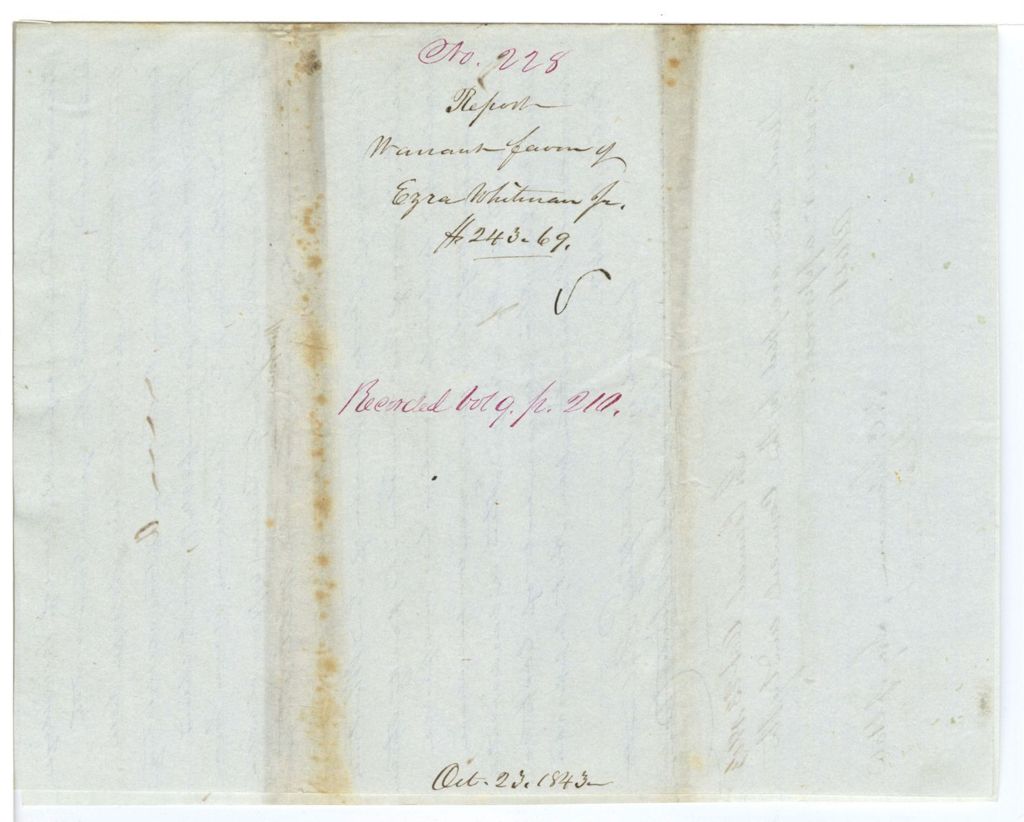 No. 228
Report
Warrant favor of
Ezra Whitman Jr.
$243.69.
Recorded Vol 9. p. 210.
Oct. 23. 1843